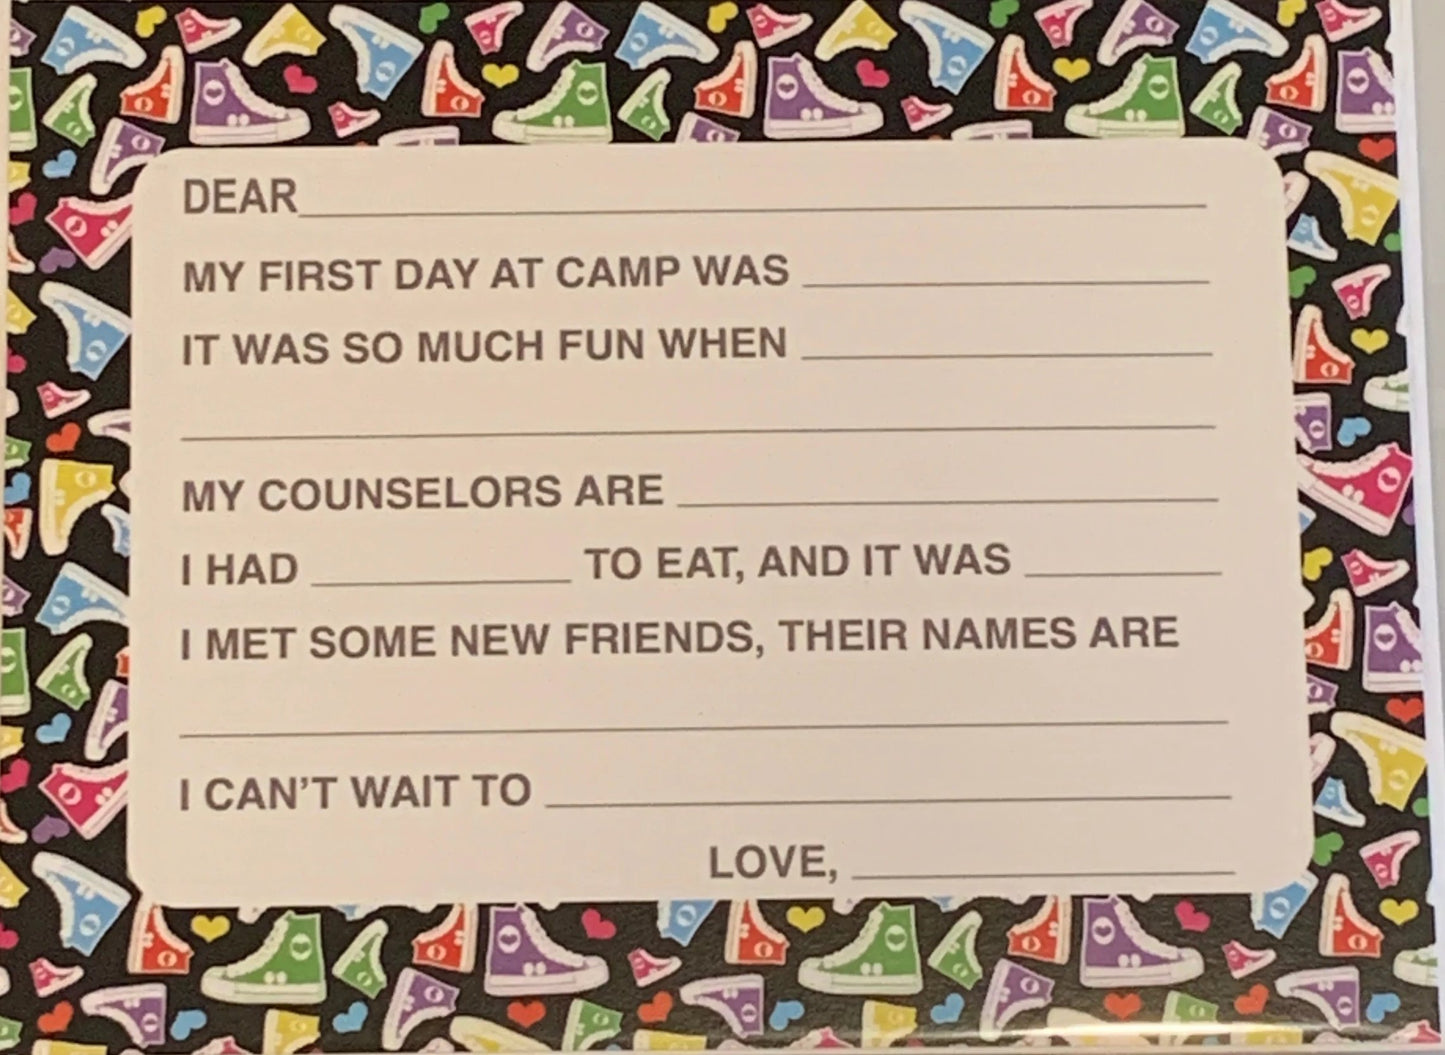 DEAR
MY FIRST DAY AT CAMP WAS
IT WAS SO MUCH FUN WHEN
MY COUNSELORS ARE
I HAD TO EAT, AND IT WAS
I MET SOME NEW FRIENDS, THEIR NAMES ARE
I CAN'T WAIT TO
LOVE,